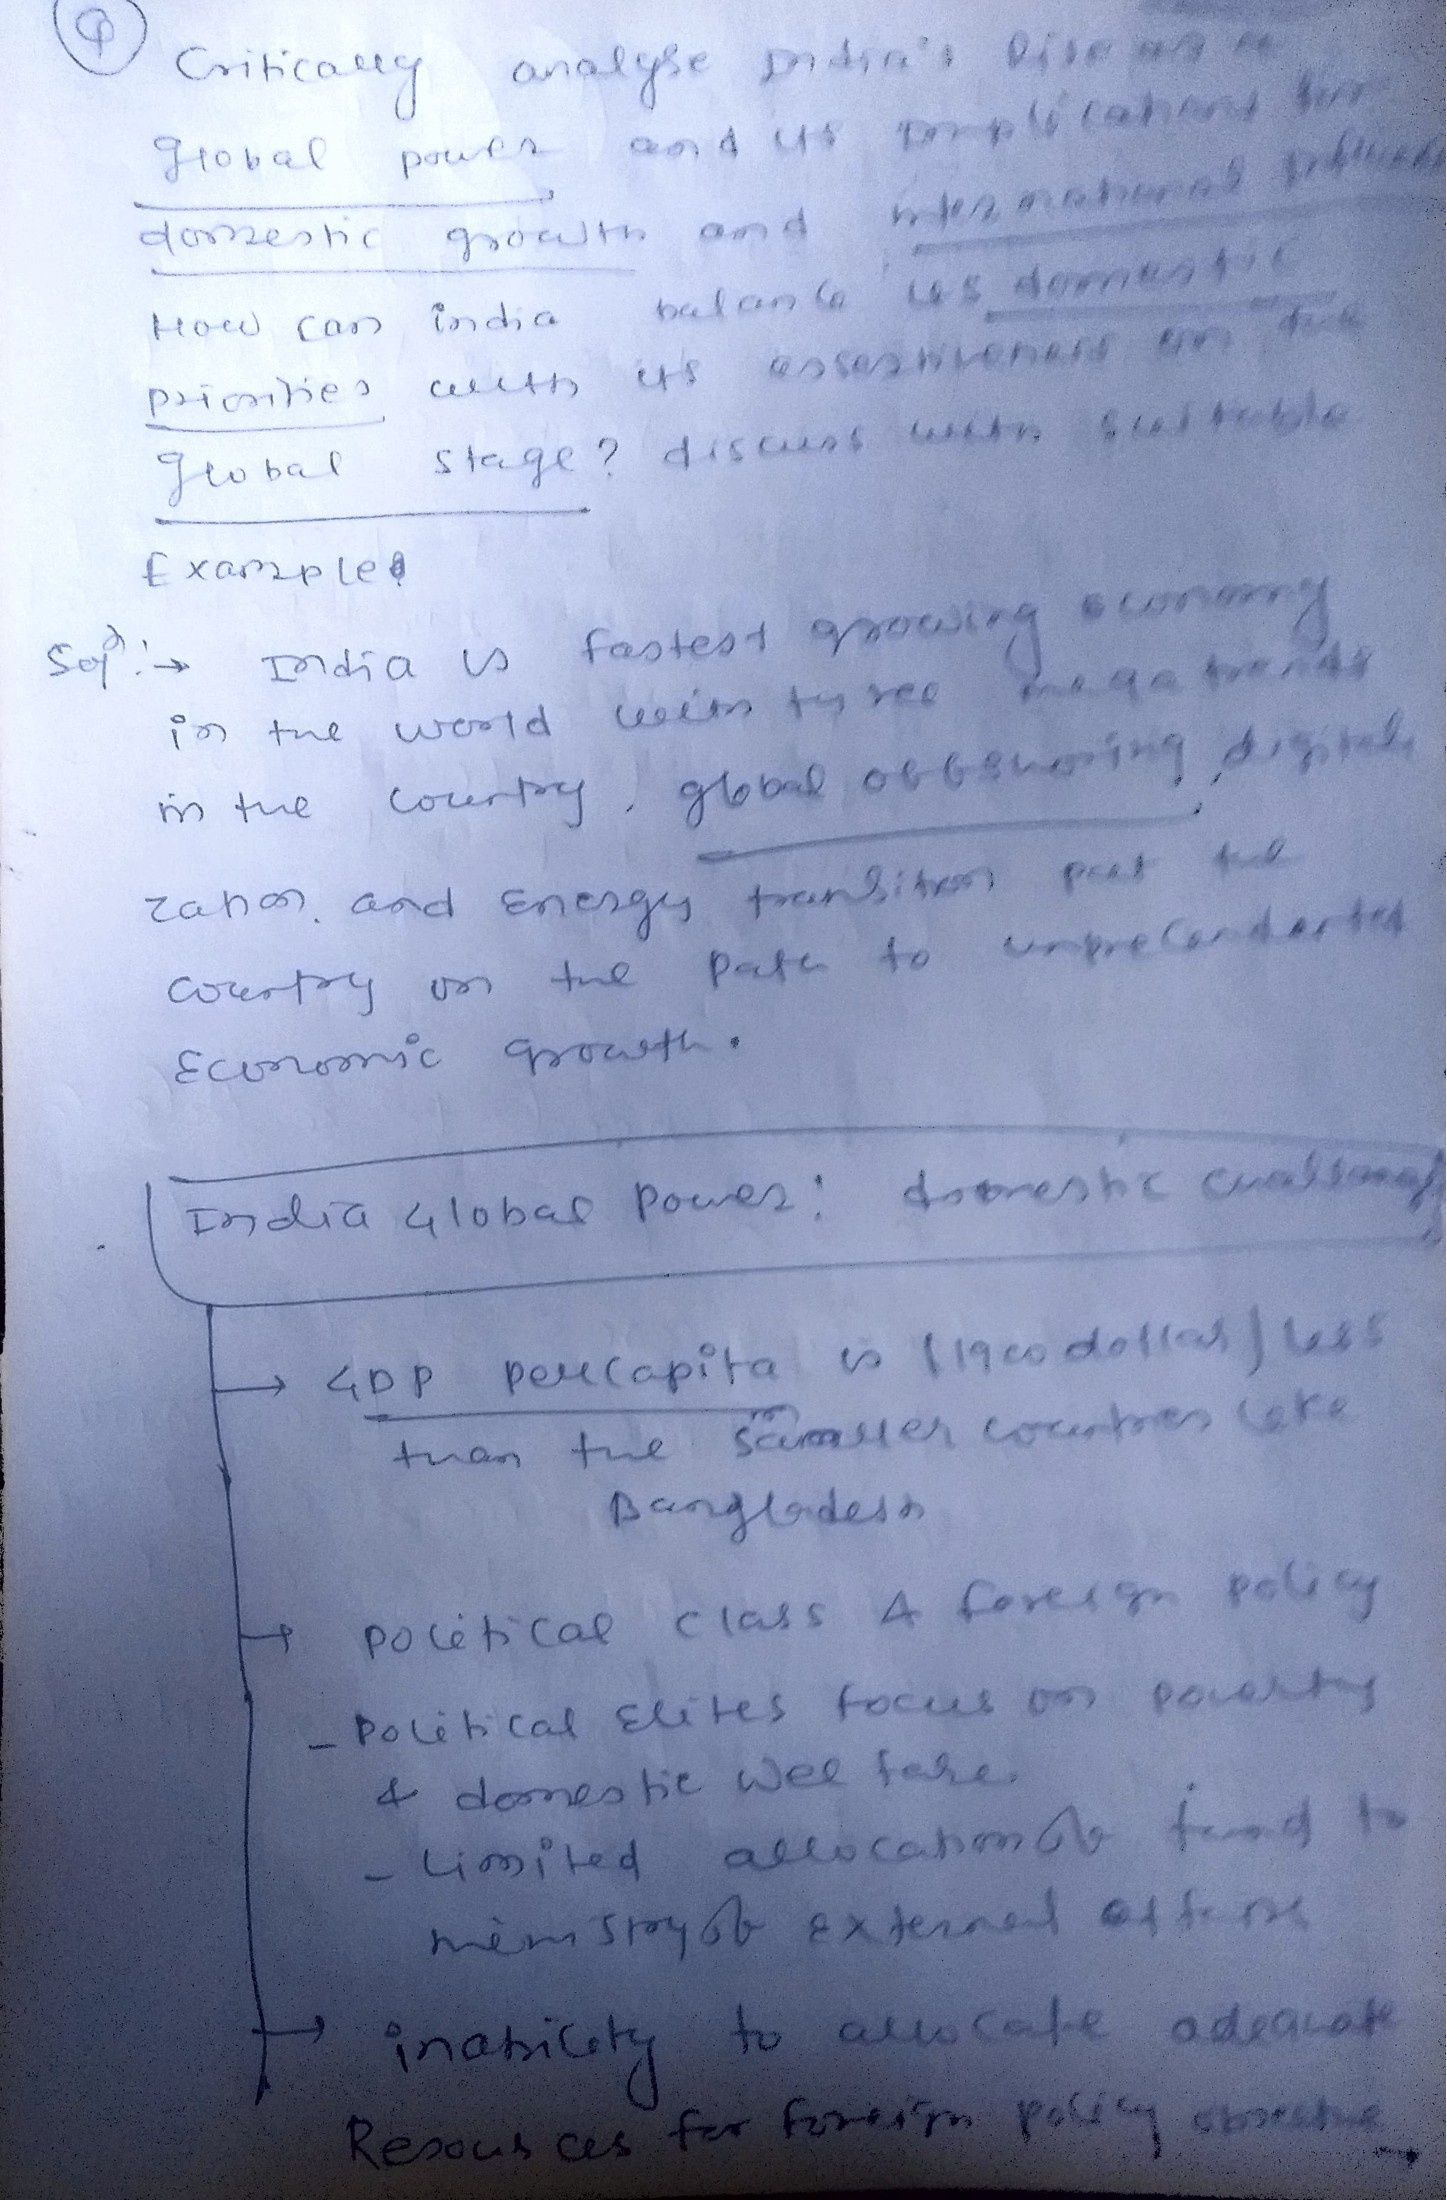 Q
Critically analyse India's Rise as a
global power and its implications for
domestic growth and international
How can india balance its domestic
priorities with its assertiveness on the
global stage? discuss with suitable
Examples
Sol: → India is fastest growing economy
in the world with three mega trends
in the country, global offshoring, digitali
zation, and Energy transition put the
country on the path to
Economic growth.
India Global Power: domestic challenges
→ GDP percapita is (1900 dollar) less
than the smaller countries like
Bangladesh
→ political class & foreign policy
- Political Elites focus on poverty
& domestic welfare.
- Limited allocation of fund to
ministry of External affairs
→ inability to allocate adequate
Resources for foreign policy objective